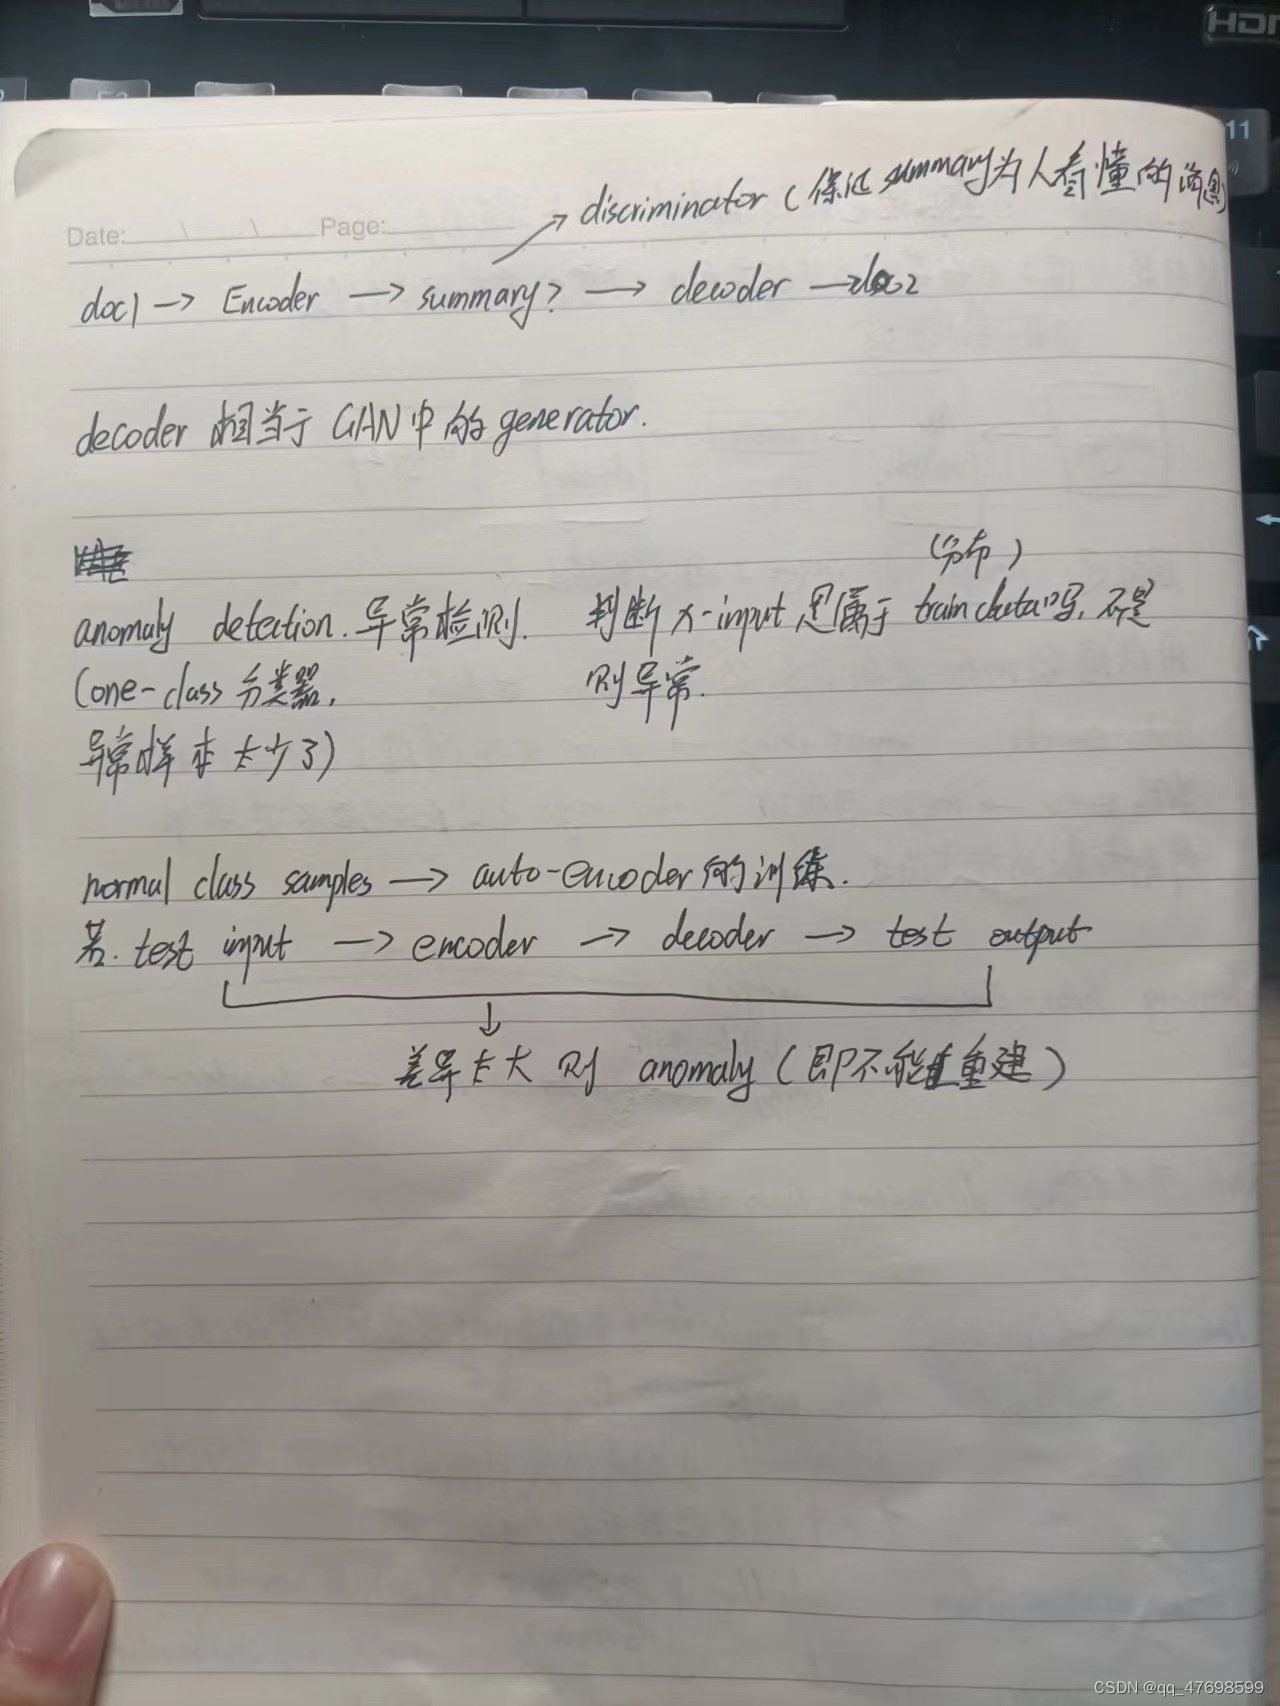 HDMI
11
discriminator (保证summary为人看懂的消息)
Date: Page:
doc1 → Encoder → summary? → decoder → doc2
decoder 相当于 GAN中的generator.
(分布)
anomaly detection.异常检测. 判断 x-input 是属于 train data吗,不是
(one-class 分类器, 则异常.
异常样本太少了)
normal class samples → auto-encoder的训练.
若. test input → encoder → decoder → test output
差异太大 则 anomaly (即不能重建)
CSDN @qq_47698599